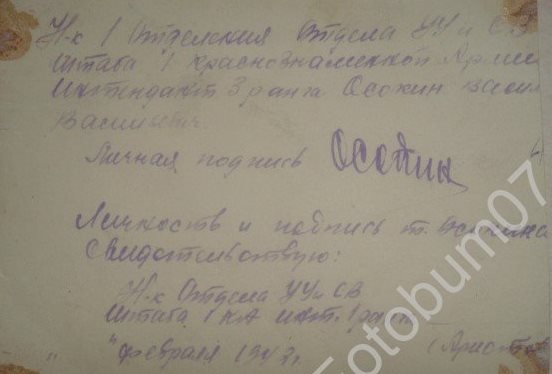 Н-к 1 Отделения Отдела УУ и С.В
Штаба 1 Краснознаменной Армии
Интендант 3 ранга Осокин Васил
Васильевич.
Личная подпись Осокин
Личность и подпись т. Осокина
Свидетельствую:
Н-к Отдела УУ и СВ
Штаба 1 КА инт. 1 ранга
" " февраля 194 г.
Fotobum07